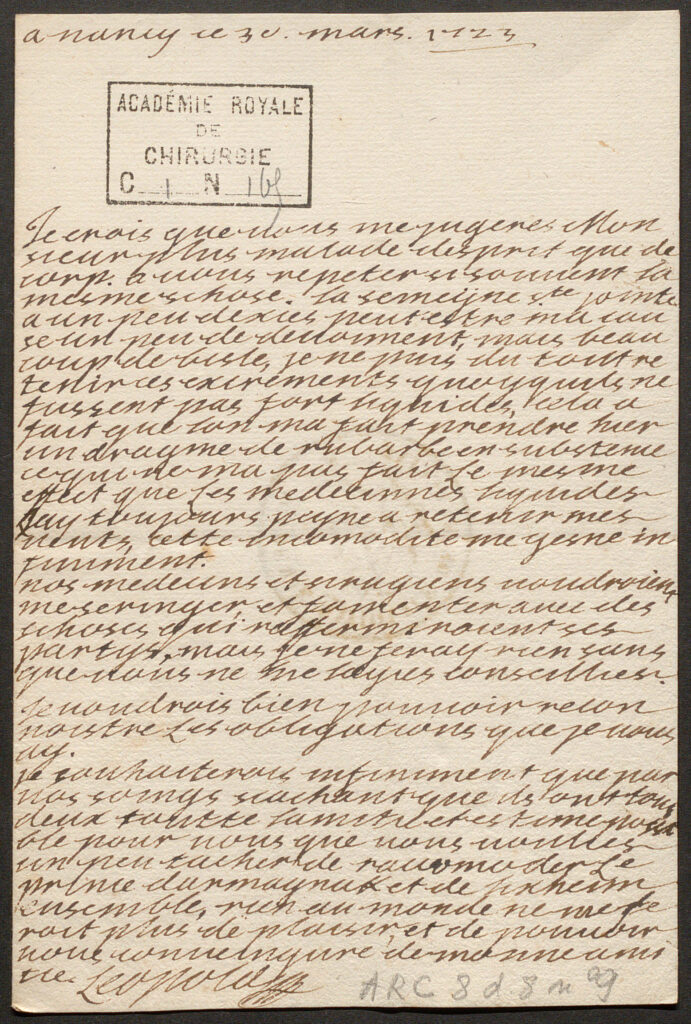 a nancy ce 30. mars. 1723
ACADÉMIE ROYALE
DE
CHIRURGIE
C 1 N 165
Je crois que vous me jugeres Mon
sieur plus malade desprit que de
corp. a vous repeter si souvent la
mesme schose. la semeijne s.te jointe
a un peu dexces peut estre ma cau
se un peu de devoiment, mais beau
coup de bisle, je ne puis du toutt re
tenir ces excrements quoy quils ne
fussent pas fort liquides, cela a
fait que lon ma fait prendre hier
un dragme de rubarbe en substence
ce qui ne ma pas fait le mesme
effect que les medecinnes liquides
Jay toujours peyne a retenir mes
vents, cette incomodite me gesne in
finiment.
nos medecins et sirugiens voudroient
me seringer et fomenter avec des
schoses qui raffermiroient ses
partys, mais je ne feray rien sans
que vous ne me layes conseillies.
Je voudrois bien pouvoir recon
noistre les obligations que je vous
ay.
je souhaiterois infiniment que par
vos soings sachant que ils ont tous
deux toutte lamitie et estime possi
ble pour vous que vous voulies
un peu tacher de racomoder le
prince darmagnak et de lixheim
ensemble, rien au monde ne me fe
roit plus de plaisir, et de pouvoir
vous conveingure de mon ami
tie. Leopold
ARC 8 d 8 n 09